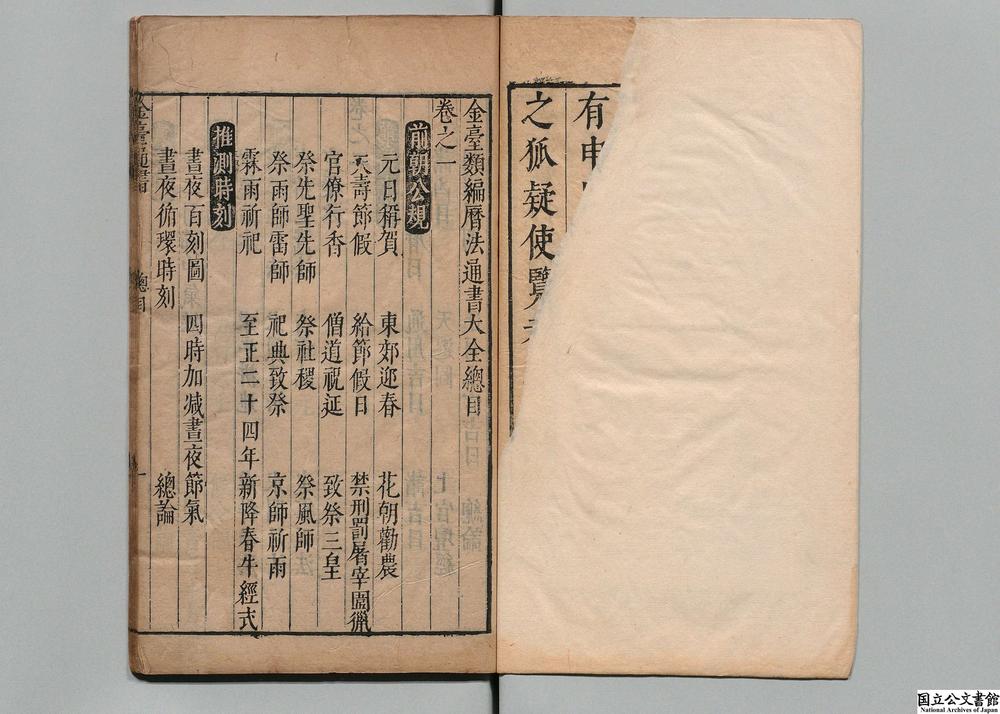 有申
之狐疑使覽
金臺類編曆法通書大全總目
卷之一
前朝公規
元日稱賀 東郊迎春 花朝勸農
天壽節假 給節假日 禁刑罰屠宰圍獵
官僚行香 僧道祝延 致祭三皇
祭先聖先師 祭社稷 祭風師
祭雨師雷師 祀典致祭 京師祈雨
霖雨祈祀 至正二十四年新降春牛經式
推測時刻
晝夜百刻圖 四時加减晝夜節氣
晝夜循環時刻 總論
金臺通書 總目 一
国立公文書館
National Archives of Japan